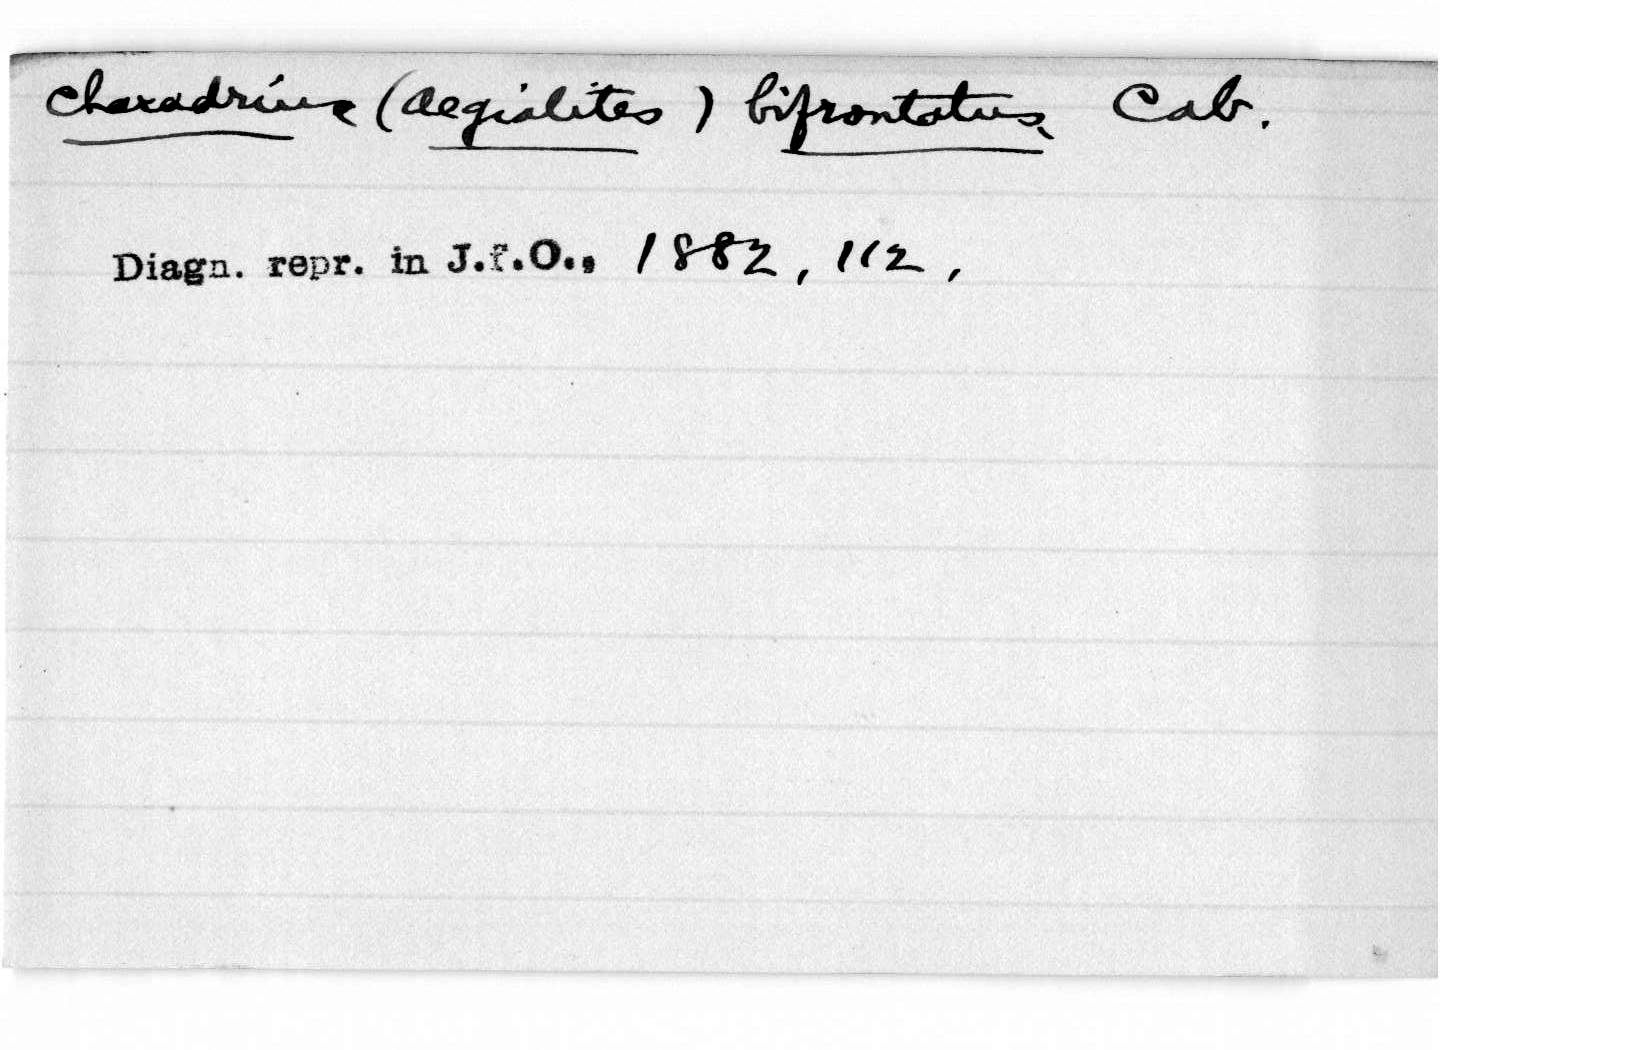 Charadrius (Aegialites) bifrontatus, Cab.
Diagn. repr. in J.f.O., 1882, 112,